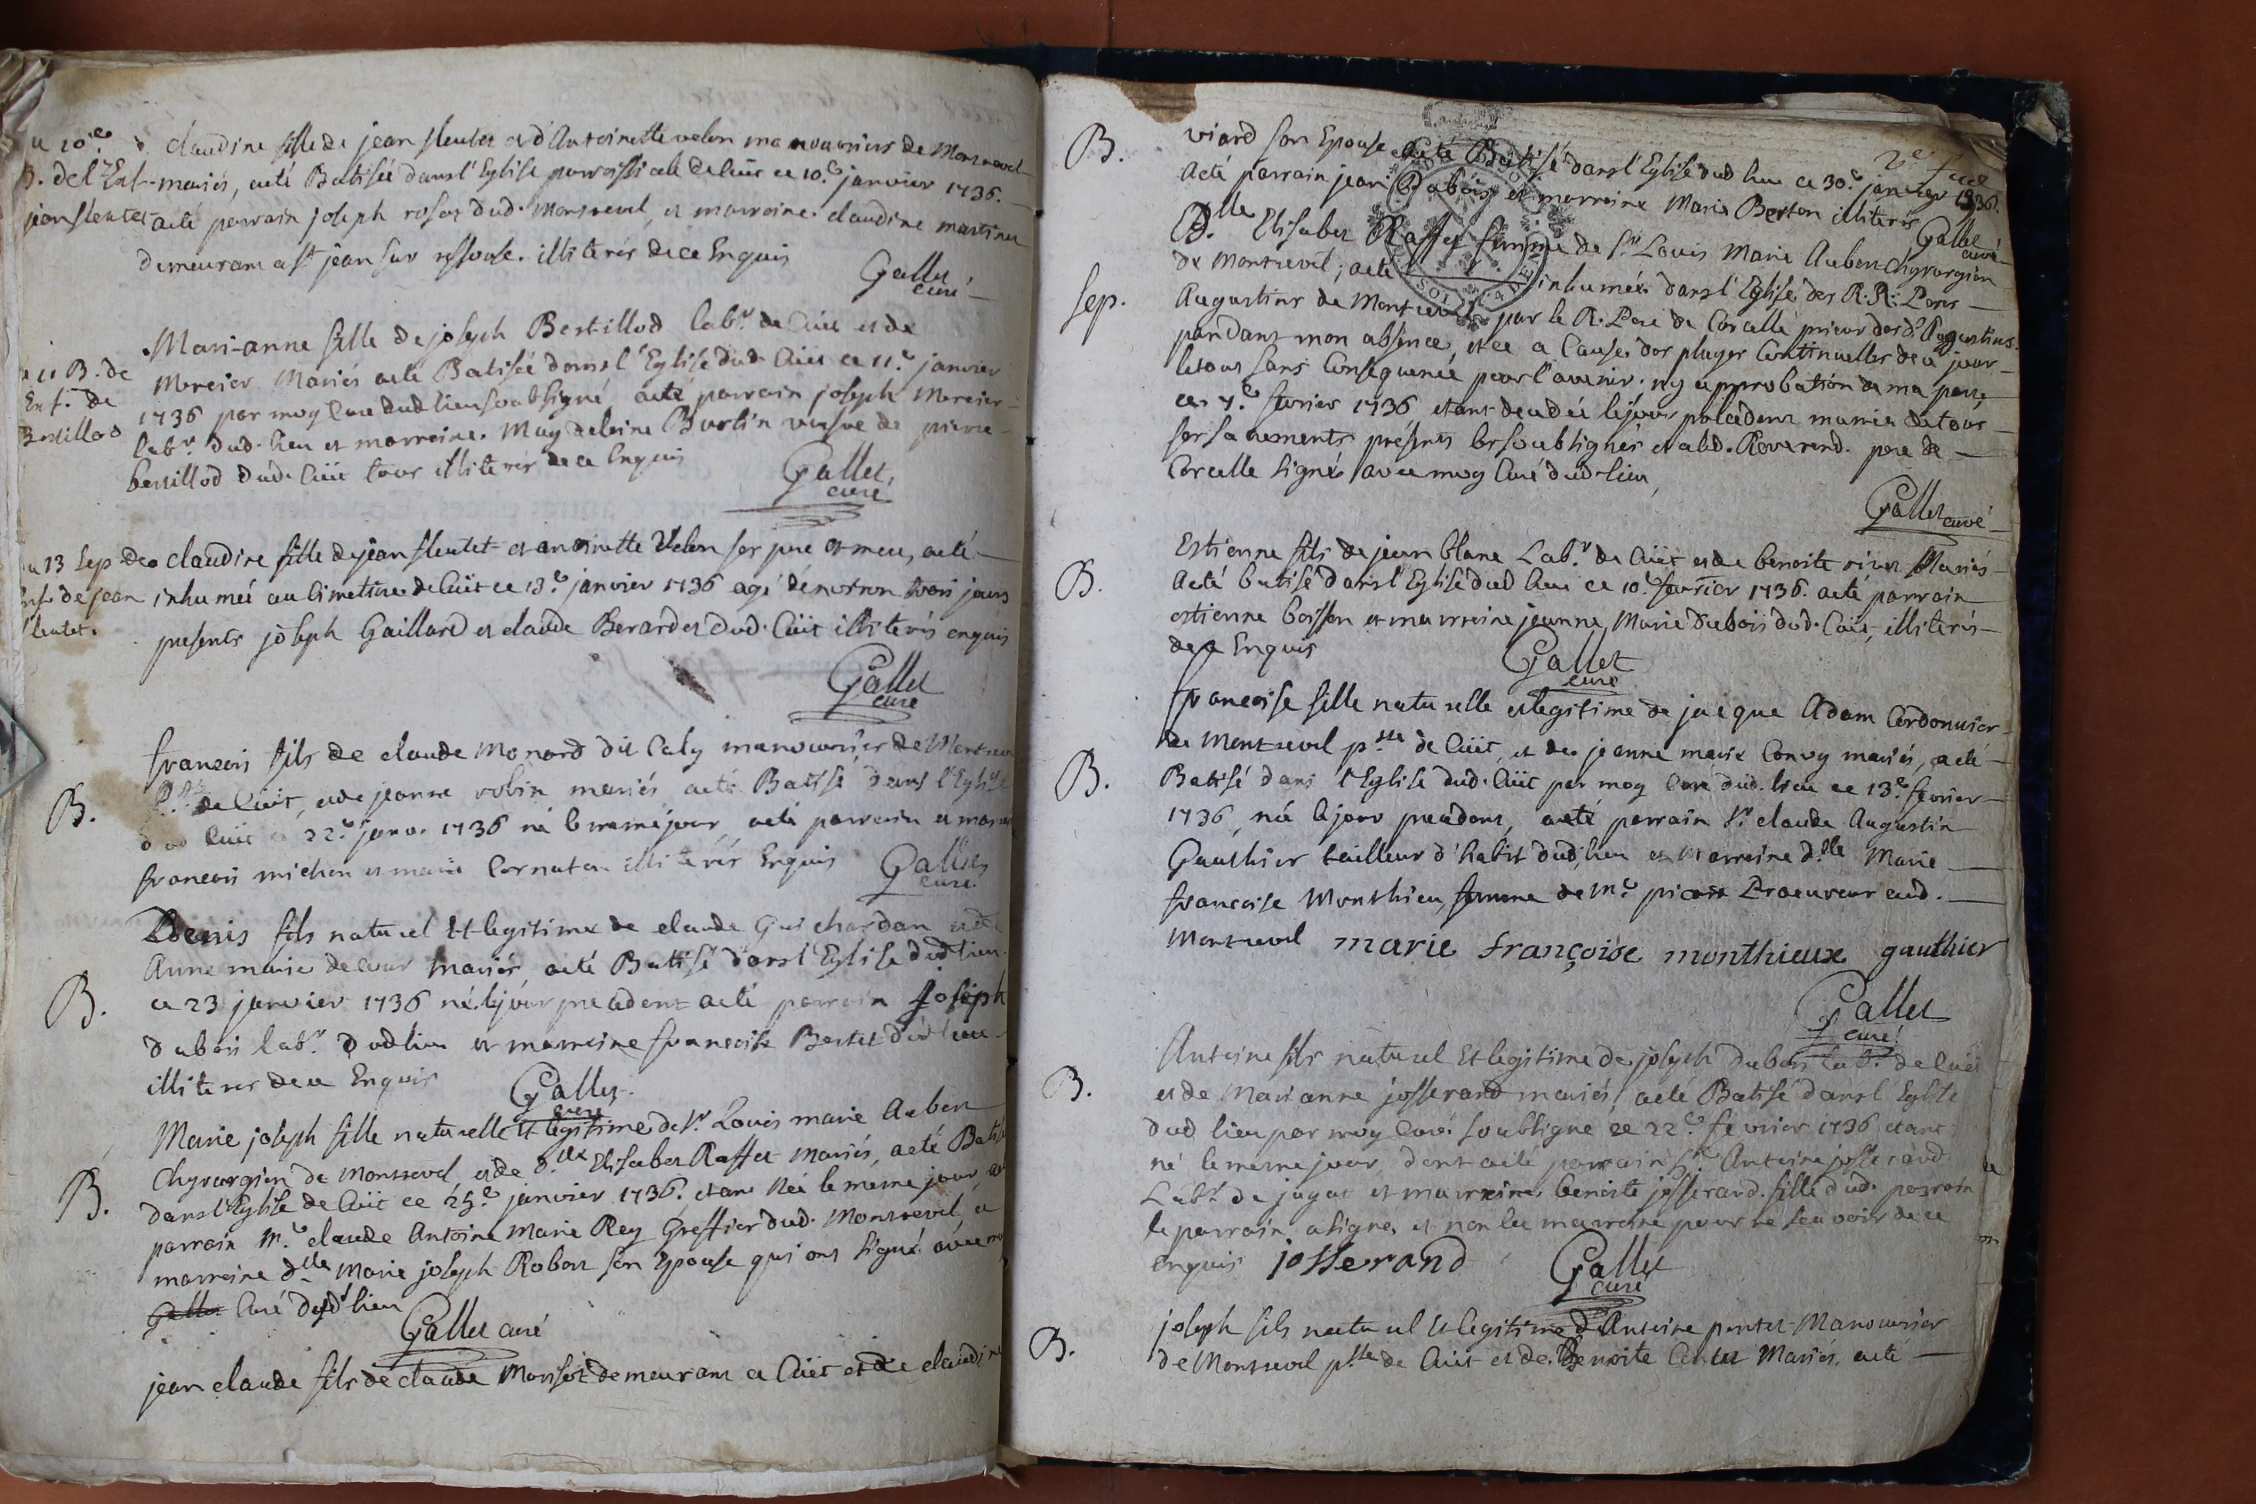 u 10.e claudine fille de jean fleutet et d'Antoinette velon manouvriers de Monrevel
B. de l'Enf. mariés, a eté Batisée dans l'Eglise parroissiale de Cuit ce 10.e janvier 1736.
jean fleutet a eté parrain joseph rosat dud. Monrevel, et marraine claudine martinet
demeurant a st jean sur ressouse. illiterés de ce Enquis
Gallet curé
Mari-anne fille de joseph Bertillod lab.r de Cuit et de
u 11 B. de Mercier Mariés a eté Batisée dans l'Eglise dud. Cuit ce 11.e janvier
Enf. de 1736 par moy Curé dud lieu soubsigné a eté parrain joseph Mercier
Bertillod lab.r dud. lieu et marraine. Magdelaine Burtin vefve de pierre
bertillod dud. Cuit tous illiterés de ce Enquis
Gallet, curé
u 13 Sep de claudine fille de jean fleutet et antoinette Velon ses pere et mere, a eté
enf. de jean inhumée au Cimettiere de Cuit ce 13.e janvier 1736 agé d'environ trois jours
fleutet. presents joseph Gaillard et claude Berardet dud. Cuit illiterés enquis
Gallet curé
francois fils de claude Monard dit Caly manouvrier de Montrevel
B. p.sse de Cuit, et de jeanne robin mariés a eté Batisé dans l'Eglise
dud Cuit ce 22.e janv. 1736 né le meme jour, a eté parrain et marraine
francois michon et marie Cornaton illiterés Enquis
Gallet curé
Denis fils naturel et legitime de claude Guichardan et de
Anne marie decour mariés a eté Batisé dans l'Eglise dud lieu
B. ce 23 janvier 1736 né le jour precedent a eté parrain joseph
dubois lab.r dud lieu et marraine francoise Bertet dud lieu
illiterés de ce Enquis
Gallet curé
Marie joseph fille naturelle et legitime de s.r Louis marie Aubert
Chyrurgien de Monrevel, et de d.lle Elisabet Raffet mariés, a eté Batisée
B. dans l'Eglise de Cuit ce 25.e janvier 1736. etant née le meme jour,
parrain M.e claude Antoine Marie Rey Greffier dud. Monrevel, et
marraine d.lle Marie joseph Robert son Epouse qui ont signé avec moy
Gallet Curé dud lieu
Gallet curé
jean claude fils de claude Morisot demeurant a Cuit et de claudine
B. viard son Epouse a eté Batisé dans l'Eglise dud lieu ce 30.e janvier 1736.
a eté parrain jean Dubois et marraine Marie Berton illiterés
Gallet curé
D.lle Elisabet Raffet femme de s.r Louis Marie Aubert Chyrurgien
de Montrevel, a eté inhumée dans l'Eglise des R.R. Peres
Sep. Augustins de Montrevel par le R. Pere de Corcelle prieur des d. Augustins
pendant mon absence, et ce a Cause des pluyes Continuelles de ce jour
le tout sans Consequence pour l'avenir. ny approbation de ma part,
ce 7.e fevrier 1736 etant decedée le jour précédent munie de tous
ses sacrements présents les soubsignés et led. Reverend. pere de
Corcelle signé avec moy Curé dud. lieu,
Gallet curé
Estienne fils de jean blanc Lab.r de Cuit et de benoite rivet Mariés
B. a eté batisé dans l'Eglise dud lieu ce 10.e fevrier 1736. a eté parrain
estienne boisson et marraine jeanne Marie dubois dud. Cuit, illiterés
de ce Enquis
Gallet curé
francoise fille naturelle et legitime de jacque Adam Cordonnier
de Montrevel p.sse de Cuit, et de jeanne marie Convy mariés, a eté
B. Batisé dans l'Eglise dud. Cuit par moy Curé dud. lieu ce 13.e fevrier
1736, née le jour precedent, a eté parrain s.r claude Augustin
Gauthier tailleur d'habit dud. lieu et Marraine d.lle Marie
francoise Monthieu, femme de M.e picard Procureur aud.
Montrevel marie françoise monthieux gauthier
Gallet curé
Antoine fils naturel et legitime de joseph dubois lab.r de Cuit
B. et de Marianne josserand mariés, a eté Batisé dans l'Eglise
dud lieu par moy Curé soubsigné ce 22.e fevrier 1736 etant
né le meme jour, dont a eté parrain s.r Antoine josserand
Lab.r de jayat et marraine benoite josserand fille dud. parrain
le parrain a signé, et non la marraine pour ne scavoir de ce
enquis josserand
Gallet curé
joseph fils naturel et legitime d'Antoine pentet Manouvrier
B. de Montrevel p.sse de Cuit et de Benoite Mariés, a eté